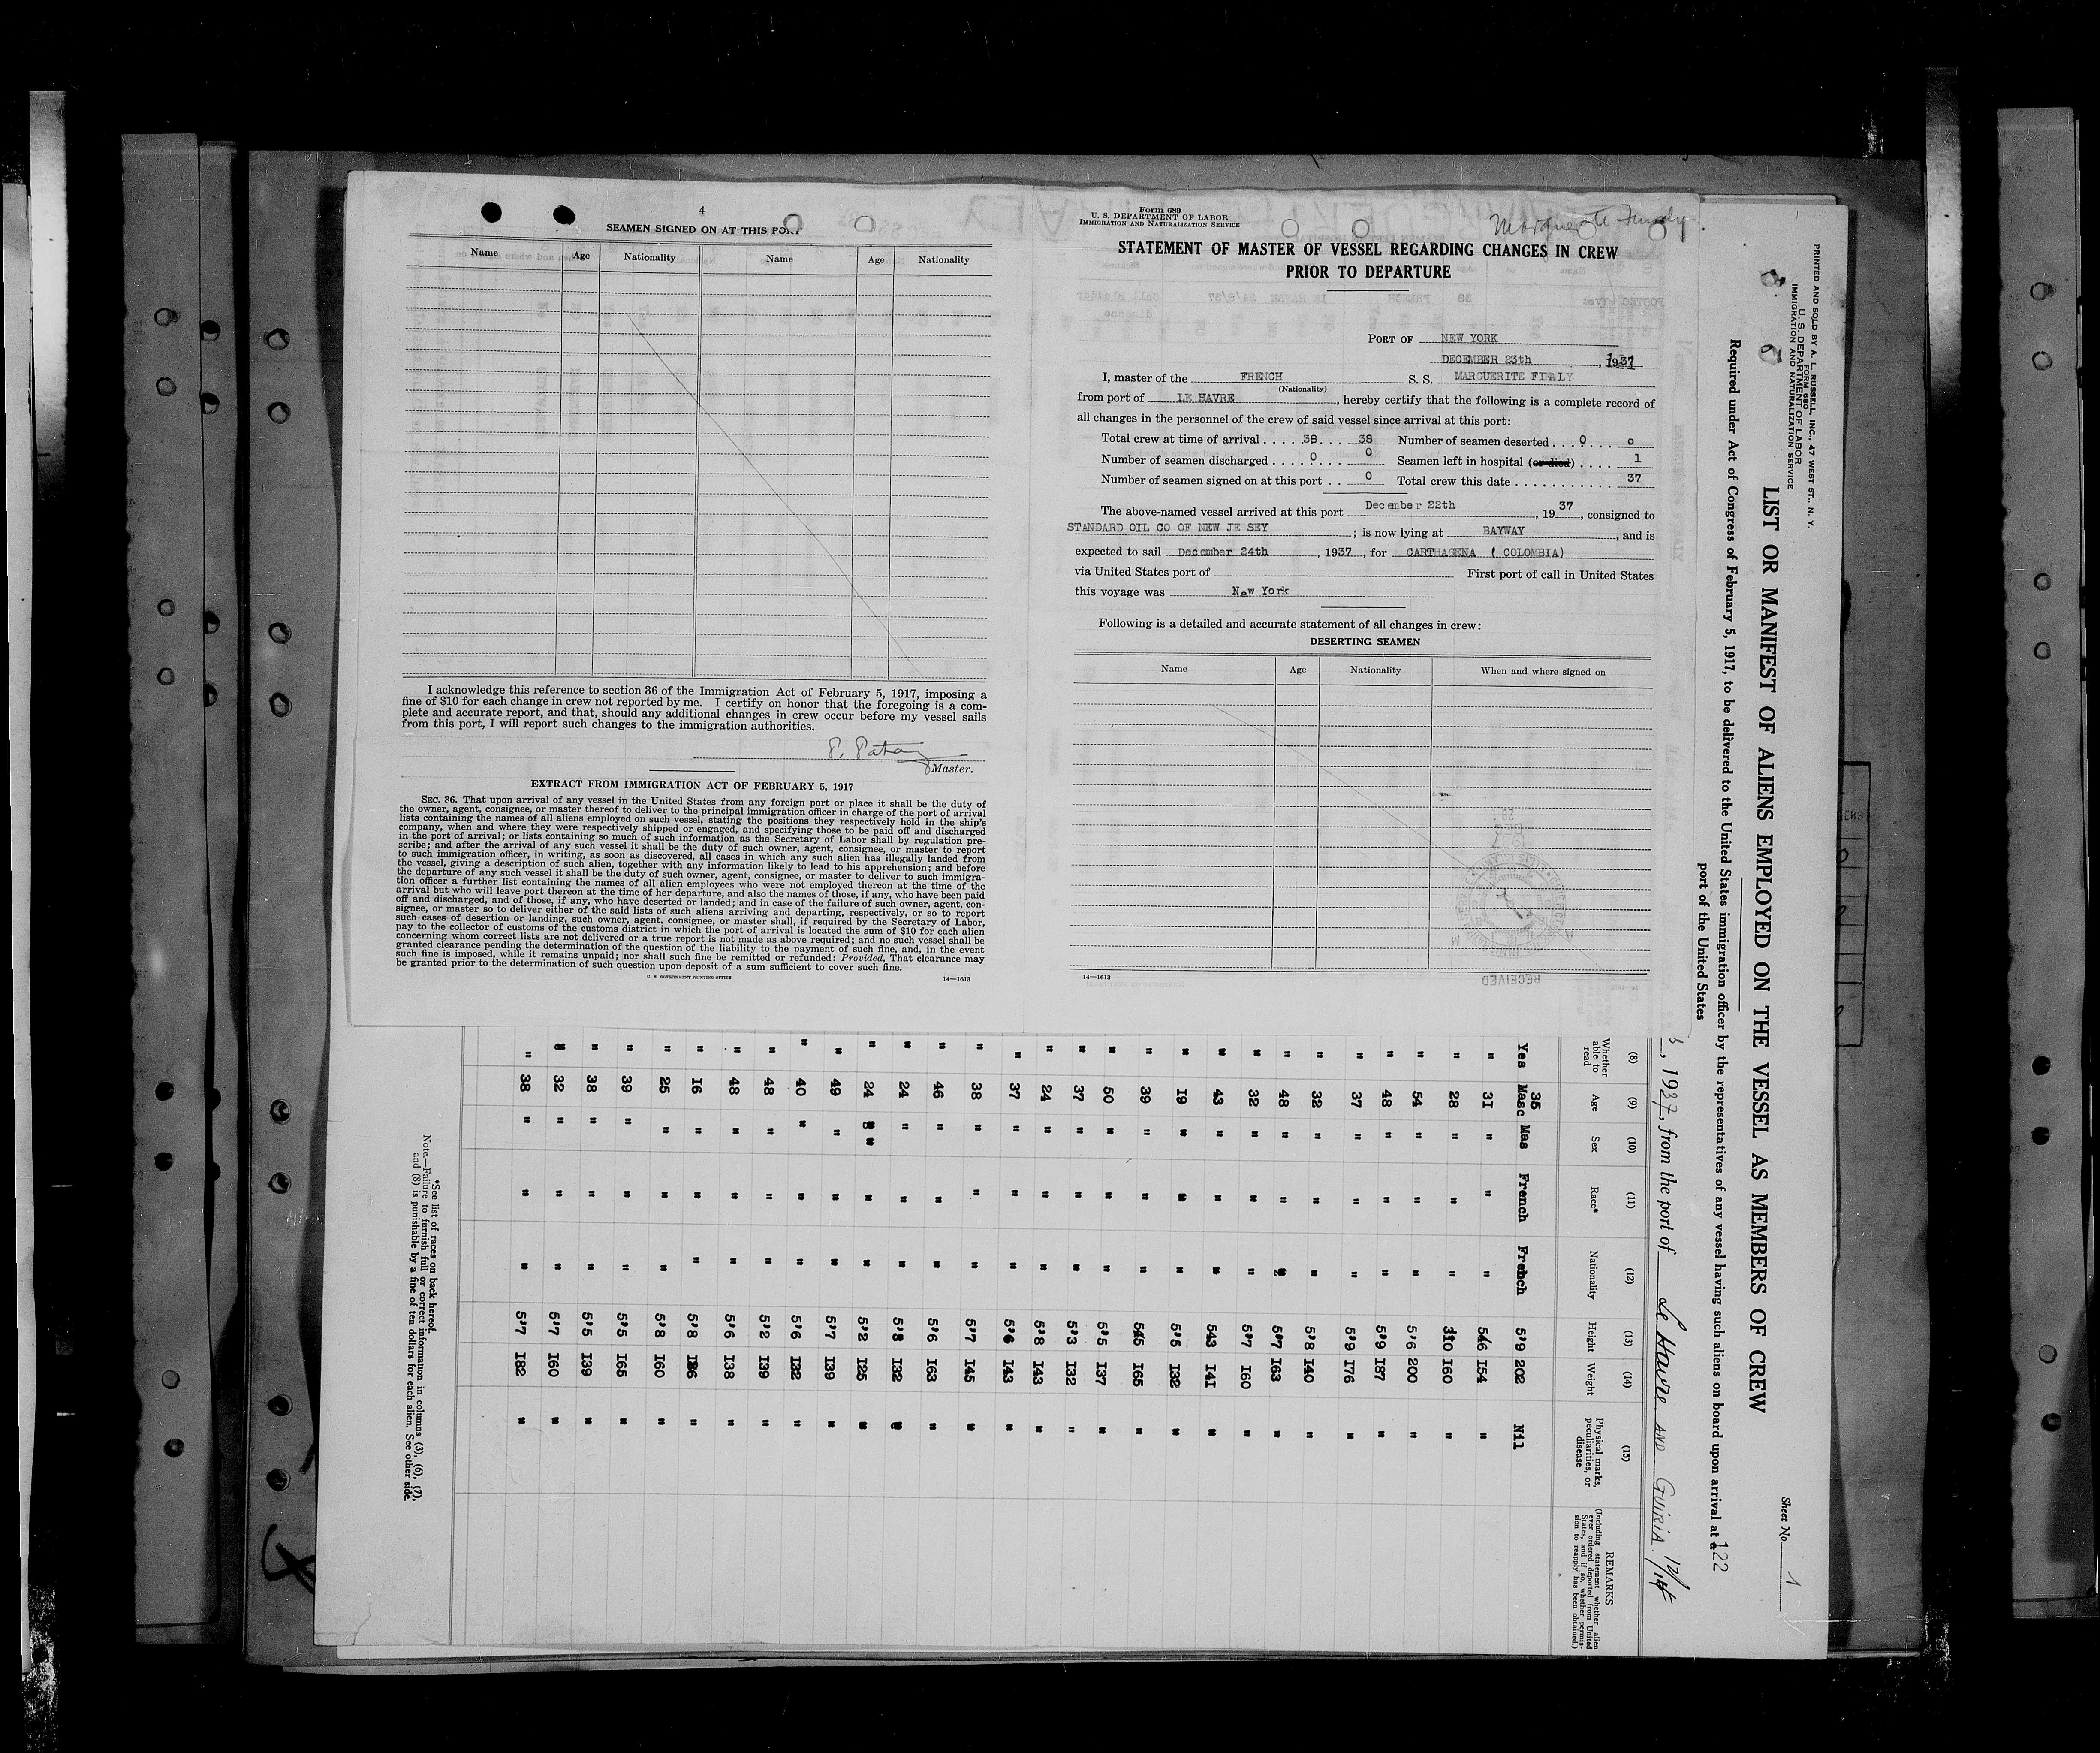 4
SEAMEN SIGNED ON AT THIS PORT
Name Age Nationality Name Age Nationality
I acknowledge this reference to section 36 of the Immigration Act of February 5, 1917, imposing a
fine of $10 for each change in crew not reported by me. I certify on honor that the foregoing is a com-
plete and accurate report, and that, should any additional changes in crew occur before my vessel sails
from this port, I will report such changes to the immigration authorities.
Master.
EXTRACT FROM IMMIGRATION ACT OF FEBRUARY 5, 1917
SEC. 36. That upon arrival of any vessel in the United States from any foreign port or place it shall be the duty of
the owner, agent, consignee, or master thereof to deliver to the principal immigration officer in charge of the port of arrival
lists containing the names of all aliens employed on such vessel, stating the positions they respectively hold in the ship's
company, when and where they were respectively shipped or engaged, and specifying those to be paid off and discharged
in the port of arrival; or lists containing so much of such information as the Secretary of Labor shall by regulation pre-
scribe; and after the arrival of any such vessel it shall be the duty of such owner, agent, consignee, or master to report
to such immigration officer, in writing, as soon as discovered, all cases in which any such alien has illegally landed from
the vessel, giving a description of such alien, together with any information likely to lead to his apprehension; and before
the departure of any such vessel it shall be the duty of such owner, agent, consignee, or master to deliver to such immigra-
tion officer a further list containing the names of all alien employees who were not employed thereon at the time of the
arrival but who will leave port thereon at the time of her departure, and also the names of those, if any, who have been paid
off and discharged, and of those, if any, who have deserted or landed; and in case of the failure of such owner, agent, con-
signee, or master so to deliver either of the said lists of such aliens arriving and departing, respectively, or so to report
such cases of desertion or landing, such owner, agent, consignee, or master shall, if required by the Secretary of Labor,
pay to the collector of customs of the customs district in which the port of arrival is located the sum of $10 for each alien
concerning whom correct lists are not delivered or a true report is not made as above required; and no such vessel shall be
granted clearance pending the determination of the question of the liability to the payment of such fine, and, in the event
such fine is imposed, while it remains unpaid; nor shall such fine be remitted or refunded: Provided, That clearance may
be granted prior to the determination of such question upon deposit of a sum sufficient to cover such fine.
U. S. GOVERNMENT PRINTING OFFICE 14—1613
Form 689
U. S. DEPARTMENT OF LABOR
IMMIGRATION AND NATURALIZATION SERVICE
STATEMENT OF MASTER OF VESSEL REGARDING CHANGES IN CREW
PRIOR TO DEPARTURE
PORT OF NEW YORK
DECEMBER 23th, 1937
I, master of the FRENCH S. S. MARGUERITE FINALY
(Nationality)
from port of LE HAVRE, hereby certify that the following is a complete record of
all changes in the personnel of the crew of said vessel since arrival at this port:
Total crew at time of arrival 38 38 Number of seamen deserted 0 0
Number of seamen discharged 0 0 Seamen left in hospital (or died) 1
Number of seamen signed on at this port 0 Total crew this date 37
The above-named vessel arrived at this port December 22th, 1937, consigned to
STANDARD OIL CO OF NEW JE SEY; is now lying at BAYWAY, and is
expected to sail December 24th, 1937, for CARTHAGENA ( COLOMBIA)
via United States port of First port of call in United States
this voyage was New York
Following is a detailed and accurate statement of all changes in crew:
DESERTING SEAMEN
Name Age Nationality When and where signed on
14—1613
RECEIVED
PRINTED AND SOLD BY A. L. RUSSELL, INC., 47 WEST ST., N. Y.
FORM 680
U. S. DEPARTMENT OF LABOR
IMMIGRATION AND NATURALIZATION SERVICE
Sheet No. 1
LIST OR MANIFEST OF ALIENS EMPLOYED ON THE VESSEL AS MEMBERS OF CREW
Required under Act of Congress of February 5, 1917, to be delivered to the United States immigration officer by the representatives of any vessel having such aliens on board upon arrival at a 122
port of the United States
, 1937, from the port of Le Havre AND GUIRIA 12/14
(8) (9) (10) (11) (12) (13) (14) (15)
Whether able to read Age Sex Race* Nationality Height Weight Physical marks, peculiarities, or disease REMARKS
(Including statement whether alien ever ordered deported from United States, and if so, whether permission to reapply has been obtained.)
35
Yes Masc Mas French French 5'9 202 Nil
" 31 " " " 546 154 "
" 28 " " " 310 160 "
" 54 " " " 5'6 200 "
" 48 " " " 5'9 187 "
" 37 " " " 5'9 176 "
" 32 " " " 5'8 140 "
" 48 " " " 5'7 163 "
" 32 " " " 5'7 160 "
" 43 " " " 543 141 "
" 19 " " " 5'5 132 "
" 39 " " " 545 165 "
" 50 " " " 5'5 137 "
" 37 " " " 5'3 132 "
" 24 " " " 5'8 143 "
" 37 " " " 5'6 143 "
" 38 " " " 5'7 145 "
" 46 " " " 5'6 163 "
" 24 " " " 5'8 132 "
" 24 " " " 5'2 125 "
" 49 " " " 5'7 139 "
" 40 " " " 5'6 132 "
" 48 " " " 5'2 139 "
" 48 " " " 5'6 138 "
" 16 " " " 5'8 126 "
" 25 " " " 5'8 160 "
" 39 " " " 5'5 165 "
" 38 " " " 5'5 139 "
" 32 " " " 5'7 160 "
" 38 " " " 5'7 182 "
*See list of races on back hereof.
Note.—Failure to furnish full or correct information in columns (3), (6), (7),
and (8) is punishable by a fine of ten dollars for each alien. See other side.